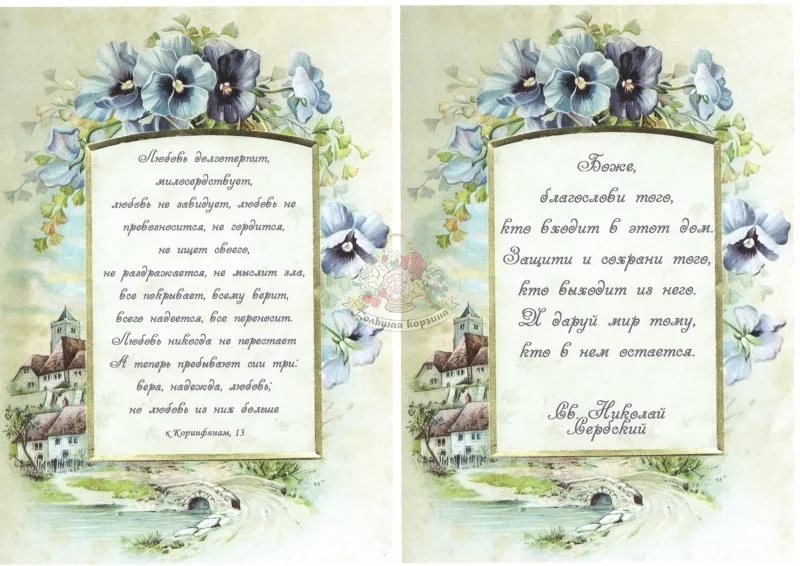 Любовь долготерпит,
милосердствует,
любовь не завидует, любовь не
превозносится, не гордится,
не ищет своего,
не раздражается, не мыслит зла,
все покрывает, всему верит,
всего надеется, все переносит.
Любовь никогда не перестает
А теперь пребывают сии три:
вера, надежда, любовь;
но любовь из них больше
к Коринфянам, 13
Боже,
благослови того,
кто входит в этот дом.
Защити и сохрани того,
кто выходит из него.
И даруй мир тому,
кто в нем остается.
Св. Николай
Сербский
Большая корзина